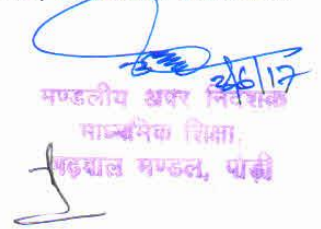 2/6/17
मण्डलीय अपर निदेशक
माध्यमिक शिक्षा
गढ़वाल मण्डल, पौड़ी